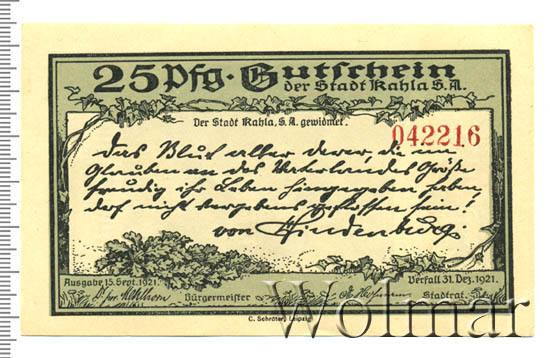 25 Pfg. Gutschein
der Stadt Kahla S.A.
Der Stadt Kahla, S.A. gewidmet.
042216
Das Blut aller derer, die im
Glauben an des Vaterlandes Größe
freudig ihr Leben hingegeben haben,
darf nicht vergebens geflossen sein!
von Hindenburg.
Ausgabe 15. Sept. 1921.
Verfall 31. Dez. 1921.
Bürgermeister
Stadtrat.
C. Schröter, Leipzig
Wolmar